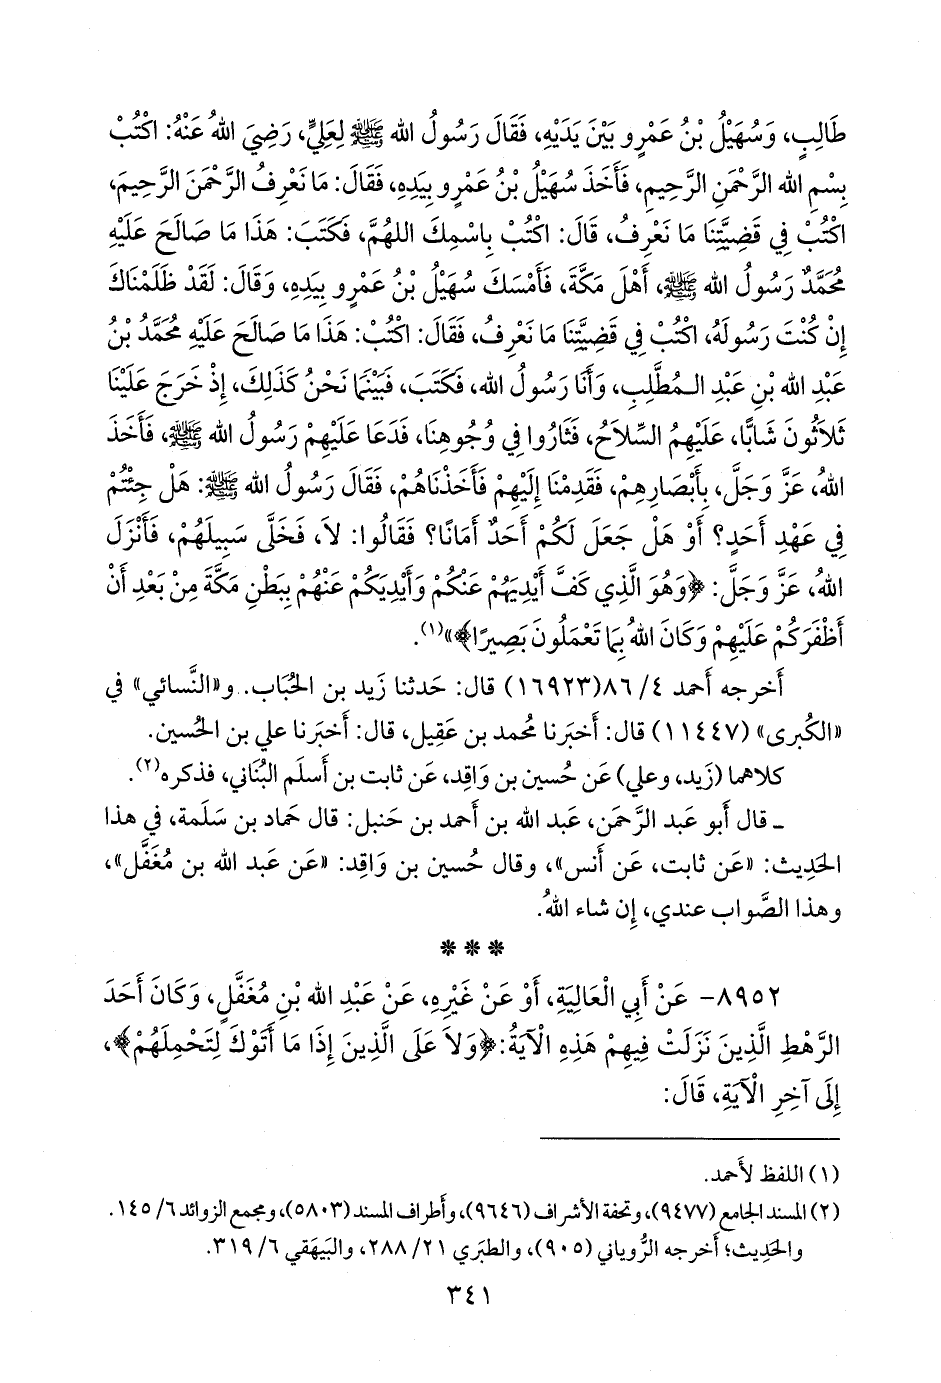 طَالِبٍ، وَسُهَيْلُ بْنُ عَمْرٍو بَيْنَ يَدَيْهِ، فَقَالَ رَسُولُ الله ﷺ لِعَلِيٍّ، رَضِيَ اللهُ عَنْهُ: اكْتُبْ
بِسْمِ الله الرَّحْمَنِ الرَّحِيمِ، فَأَخَذَ سُهَيْلُ بْنُ عَمْرٍو بِيَدِهِ، فَقَالَ: مَا نَعْرِفُ الرَّحْمَنَ الرَّحِيمَ،
اكْتُبْ فِي قَضِيَّتِنَا مَا نَعْرِفُ، قَالَ: اكْتُبْ بِاسْمِكَ اللهُمَّ، فَكَتَبَ: هَذَا مَا صَالَحَ عَلَيْهِ
مُحَمَّدٌ رَسُولُ الله ﷺ، أَهْلَ مَكَّةَ، فَأَمْسَكَ سُهَيْلُ بْنُ عَمْرٍو بِيَدِهِ، وَقَالَ: لَقَدْ ظَلَمْنَاكَ
إِنْ كُنْتَ رَسُولَهُ، اكْتُبْ فِي قَضِيَّتِنَا مَا نَعْرِفُ، فَقَالَ: اكْتُبْ: هَذَا مَا صَالَحَ عَلَيْهِ مُحَمَّدُ بْنُ
عَبْدِ الله بْنِ عَبْدِ الـمُطَّلِبِ، وَأَنَا رَسُولُ الله، فَكَتَبَ، فَبَيْنَمَا نَحْنُ كَذَلِكَ، إِذْ خَرَجَ عَلَيْنَا
ثَلاَثُونَ شَابًّا، عَلَيْهِمُ السِّلاَحُ، فَثَارُوا فِي وُجُوهِنَا، فَدَعَا عَلَيْهِمْ رَسُولُ الله ﷺ، فَأَخَذَ
اللهُ، عَزَّ وَجَلَّ، بِأَبْصَارِهِمْ، فَقَدِمْنَا إِلَيْهِمْ فَأَخَذْنَاهُمْ، فَقَالَ رَسُولُ الله ﷺ: هَلْ جِئْتُمْ
فِي عَهْدِ أَحَدٍ؟ أَوْ هَلْ جَعَلَ لَكُمْ أَحَدٌ أَمَانًا؟ فَقَالُوا: لاَ، فَخَلَّى سَبِيلَهُمْ، فَأَنْزَلَ
اللهُ، عَزَّ وَجَلَّ: ﴿وَهُوَ الَّذِي كَفَّ أَيْدِيَهُمْ عَنْكُمْ وَأَيْدِيَكُمْ عَنْهُمْ بِبَطْنِ مَكَّةَ مِنْ بَعْدِ أَنْ
أَظْفَرَكُمْ عَلَيْهِمْ وَكَانَ اللهُ بِمَا تَعْمَلُونَ بَصِيرًا﴾»(١).
أَخرجه أَحمد ٤/ ٨٦(١٦٩٢٣) قال: حَدثنا زَيد بن الحُبَاب. و«النَّسائي» في
«الكُبرى» (١١٤٤٧) قال: أَخبَرنا محمد بن عَقِيل، قال: أَخبَرنا علي بن الحُسين.
كلاهما (زَيد، وعلي) عَن حُسين بن وَاقِد، عَن ثابت بن أَسلَم البُنَاني، فذكره(٢).
ـ قال أَبو عَبد الرَّحمَن، عَبد الله بن أَحمد بن حَنبل: قال حَماد بن سَلَمة، في هذا
الحَدِيث: «عَن ثابت، عَن أَنس»، وقال حُسين بن وَاقِد: «عَن عَبد الله بن مُغَفَّل»،
وهذا الصَّواب عندي، إِن شاء اللهُ.
* * *
٨٩٥٢- عَنْ أَبِي الْعَالِيَةِ، أَوْ عَنْ غَيْرِهِ، عَنْ عَبْدِ الله بْنِ مُغَفَّلٍ، وَكَانَ أَحَدَ
الرَّهْطِ الَّذِينَ نَزَلَتْ فِيهِمْ هَذِهِ الْآيَةُ:﴿وَلاَ عَلَى الَّذِينَ إِذَا مَا أَتَوْكَ لِتَحْمِلَهُمْ﴾،
إِلَى آخِرِ الْآيَةِ، قَالَ:
(١) اللفظ لأَحمد.
(٢) المسند الجامع (٩٤٧٧)، وتحفة الأشراف (٩٦٤٦)، وأطراف المسند (٥٨٠٣)، ومجمع الزوائد ٦/ ١٤٥.
والحَدِيث؛ أَخرجه الرُّوياني (٩٠٥)، والطَّبَري ٢١/ ٢٨٨، والبَيهَقي ٦/ ٣١٩.
٣٤١